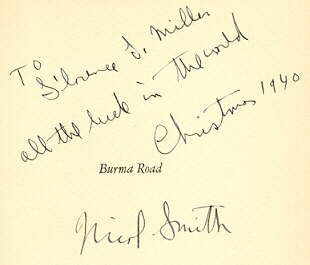 To
Florence F. Miller
all the luck in the world
Christmas 1940
Burma Road
Nicol Smith